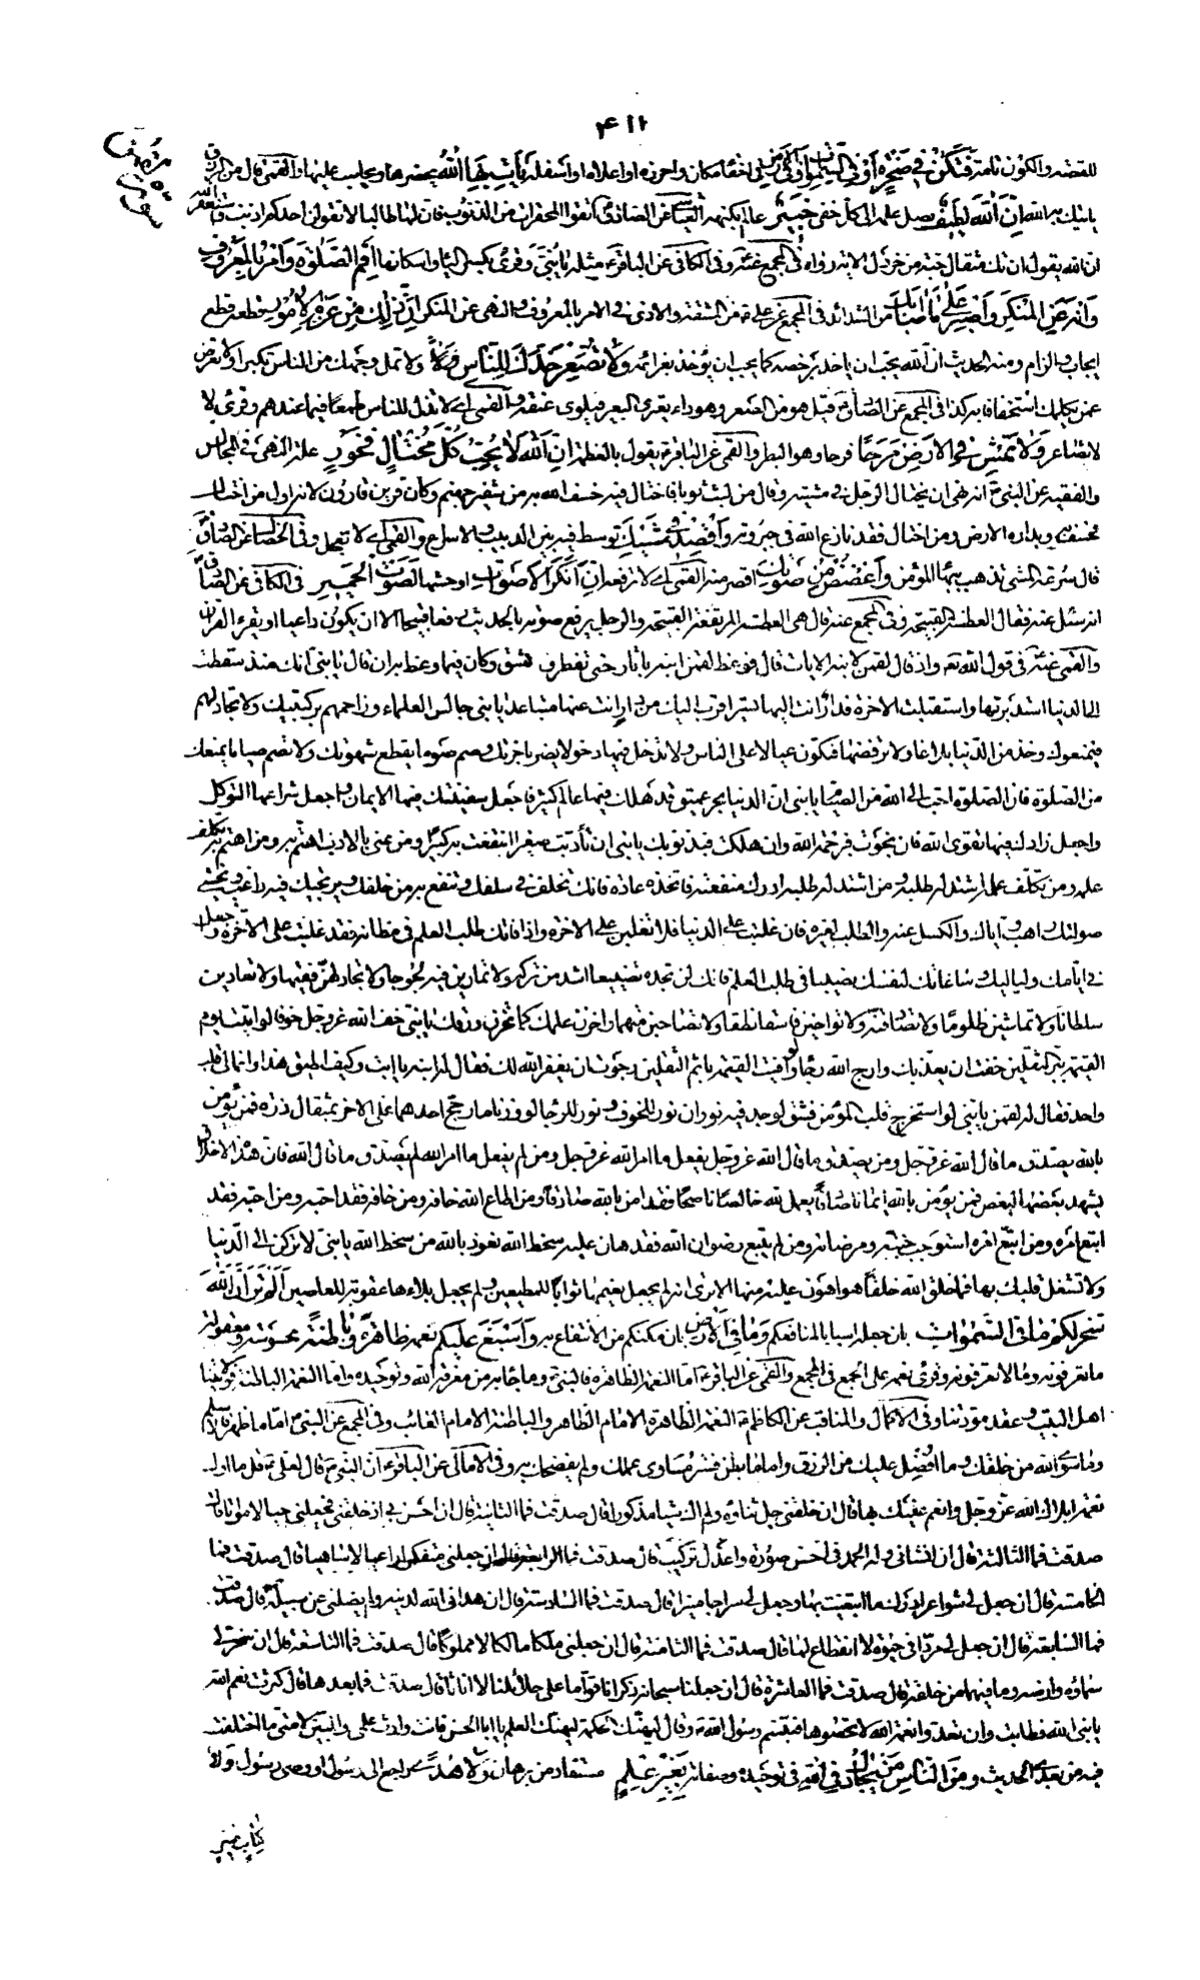 ۴۱۱
للقصة والكون تامة فَتَكُنْ فِي صَخْرَةٍ أَوْ فِي السَّمٰوَاتِ أَوْ فِي الْأَرْضِ في اخفى مكان واحرزه او اعلاه او اسفله يَأْتِ بِهَا اللّٰهُ يحضرها ويحاسب عليها والقمي قال من الرزق
يأتيك به الله إِنَّ اللّٰهَ لَطِيفٌ يصل علمه الى كل خفي خَبِيرٌ عالم بكنهه العياشي عن الصادق اتقوا المحقرات من الذنوب فان لها طالبا لا يقولن احدكم اذنب واستغفر الله
ان الله يقول ان تك مثقال حبة من خردل الاية رواه في المجمع عنه وفي الكافي عن الباقر مثله يَا بُنَيَّ وقرئ بكسر الياء واسكانها أَقِمِ الصَّلٰوةَ وَأْمُرْ بِالْمَعْرُوفِ
وَانْهَ عَنِ الْمُنْكَرِ وَاصْبِرْ عَلٰى مَا أَصَابَكَ من الشدائد في المجمع عن علي من المشقة والاذى في الامر بالمعروف والنهي عن المنكر إِنَّ ذٰلِكَ مِنْ عَزْمِ الْأُمُورِ قطعه قطع
ايجاب والزام ومنه الحديث ان الله يحب ان يؤخذ برخصه كما يحب ان يؤخذ بعزائمه وَلَا تُصَعِّرْ خَدَّكَ لِلنَّاسِ ولا تمل وجهك من الناس تكبرا ولا تعرض
عمن يكلمك استخفافا به كذا في المجمع عن الصادق قيل هو من الصعر وهو داء يعتري البعير فيلوي عنقه والقمي اي لا تذل للناس طمعا فيما عندهم وقرئ لا
لا تصاعر وَلَا تَمْشِ فِي الْأَرْضِ مَرَحًا فرحا وهو البطر والقمي عن الباقر يقول بالعظمة إِنَّ اللّٰهَ لَا يُحِبُّ كُلَّ مُخْتَالٍ فَخُورٍ علة النهي في المجالس
والفقيه عن النبي انه نهى ان يختال الرجل في مشيته وقال من لبس ثوبا فاختال فيه خسف الله به من شفير جهنم وكان قرين قارون لانه اول من اختال
فخسف به وبداره الارض ومن اختال فقد نازع الله في جبروته وَاقْصِدْ فِي مَشْيِكَ توسط فيه بين الدبيب والاسراع والقمي اي لا تعجل وفي الخصال عن الصادق
قال سرعة المشي تذهب ببهاء المؤمن وَاغْضُضْ مِنْ صَوْتِكَ اقصر منه القمي اي لا ترفعه إِنَّ أَنْكَرَ الْأَصْوَاتِ اوحشها لَصَوْتُ الْحَمِيرِ في الكافي عن الصادق
انه سئل عنه فقال العطسة القبيحة وفي المجمع عنه قال هي العطسة المرتفعة القبيحة والرجل يرفع صوته بالحديث رفعا قبيحا الا ان يكون داعيا او يقرء القران
والقمي عنه في قول الله تعه واذ قال لقمن لابنه الايات قال فوعظ لقمن ابنه باثار حتى تفطر وانشق وكان فيما وعظ به ان قال يا بني انك منذ سقطت
الى الدنيا استدبرتها واستقبلت الاخرة فدار انت اليها تسير اقرب اليك من دار انت عنها متباعد يا بني جالس العلماء وزاحمهم بركبتيك ولا تجادلهم
فيمنعوك وخذ من الدنيا بلاغا ولا ترفضها فتكون عيالا على الناس ولا تدخل فيها دخولا يضر باخرتك وصم صوما يقطع شهوتك ولا تصم صياما يمنعك
من الصلوة فان الصلوة احب الى الله من الصيام يا بني ان الدنيا بحر عميق قد هلك فيها عالم كثير فاجعل سفينتك فيها الايمان واجعل شراعها التوكل
واجعل زادك فيها تقوى الله فان نجوت فبرحمة الله وان هلكت فبذنوبك يا بني ان تأدبت صغيرا انتفعت به كبيرا ومن عنى بالادب اهتم به ومن اهتم به تكلف
علمه ومن تكلف علمه اشتد له طلبه ومن اشتد له طلبه ادرك منفعته فاتخذه عادة فانك تخلف في سلفك وتنفع به من خلفك ويرتجيك فيه راغب ويخشى
صولتك راهب واياك والكسل عنه والطلب لغيره فان غلبت على الدنيا فلا تغلبن على الاخرة واذا فاتك طلب العلم في مظانه فقد غلبت على الاخرة واجعل
في ايامك ولياليك وساعاتك لنفسك نصيبا في طلب العلم فانك لن تجد له تضييعا اشد من تركه ولا تمارين فيه لجوجا ولا تجادلن فقيها ولا تعادين
سلطانا ولا تماشين ظلوما ولا تصادقنه ولا تواخين فاسقا نطفا ولا تصاحبن متهما واخزن علمك كما تخزن ورقك يا بني خف الله عز وجل خوفا لو اتيت يوم
القيمة ببر الثقلين خفت ان يعذبك وارج الله رجاء لو وافيت القيمة باثم الثقلين رجوت ان يغفر الله لك فقال له ابنه يا ابت وكيف اطيق هذا وانما لي قلب
واحد فقال له لقمن يا بني لو استخرج قلب المؤمن فشق لوجد فيه نوران نور للخوف ونور للرجا لو وزنا ما رجح احدهما على الاخر بمثقال ذرة فمن يؤمن
بالله يصدق ما قال الله عز وجل ومن يصدق ما قال الله عز وجل يفعل ما امر الله عز وجل ومن لم يفعل ما امر الله لم يصدق ما قال الله فان هذه الاخلاق
يشهد بعضها لبعض فمن يؤمن بالله ايمانا صادقا يعمل لله خالصا ناصحا فقد امن بالله صادقا ومن اطاع الله خافه ومن خافه فقد احبه ومن احبه فقد
اتبع امره ومن اتبع امره استوجب جنته ومرضاته ومن لم يتبع رضوان الله فقد هان عليه سخط الله نعوذ بالله من سخط الله يا بني لا تركن الى الدنيا
ولا تشغل قلبك بها فما خلق الله خلقا هو اهون عليه منها الا ترى انه لم يجعل نعيمها ثوابا للمطيعين ولم يجعل بلاءها عقوبة للعاصين أَلَمْ تَرَوْا أَنَّ اللّٰهَ
سَخَّرَ لَكُمْ مَا فِي السَّمٰوَاتِ بان جعله اسبابا لمنافعكم وَمَا فِي الْأَرْضِ بان مكنكم من الانتفاع به وَأَسْبَغَ عَلَيْكُمْ نِعَمَهُ ظَاهِرَةً وَبَاطِنَةً محسوسة ومعقولة
ما تعرفونه وما لا تعرفونه وقرئ نعمه على الجمع في المجمع والقمي عن الباقر اما النعمة الظاهرة فالنبي وما جاء به من معرفة الله وتوحيده واما النعمة الباطنة فولايتنا
اهل البيت وعقد مودتنا وفي الاكمال والمناقب عن الكاظم النعمة الظاهرة الامام الظاهر والباطنة الامام الغائب وفي المجمع عن النبي اما ما ظهر فالاسلم
وما سوى الله من خلقك وما افضل عليك من الرزق واما ما بطن فستر مساوي عملك ولم يفضحك به وفي الامالي عن الباقر ان النبي قال لعلي قل ما اول
نعمة ابلاك الله عز وجل وانعم عليك بها قال ان خلقني جل ثناؤه ولم اك شيئا مذكورا قال صدقت فما الثانية قال ان احسن بي اذ خلقني فجعلني حيا لا مواتا قال
صدقت فما الثالثة قال ان انشاني وله الحمد في احسن صورة واعدل تركيب قال صدقت فما الرابعة قال ان جعلني متفكرا راعيا لا ساهيا قال صدقت فما
الخامسة قال ان جعل لي شواعر ادرك ما ابتغيت بها وجعل لي سراجا منيرا قال صدقت فما السادسة قال ان هداني الله لدينه ولم يضلني عن سبيله قال صدقت
فما السابعة قال ان جعل لي مردا في حيوة لا انقطاع لها قال صدقت فما الثامنة قال ان جعلني ملكا مالكا لا مملوكا قال صدقت فما التاسعة قال ان سخر لي
سماؤه وارضه وما فيهما من خلقه قال صدقت فما العاشرة قال ان جعلنا سبحانه ذكرانا قواما على حلائلنا لا اناثا قال صدقت فما بعد هذا قال كثرت نعم الله
يا نبي الله فطابت وان تعدوا نعمة الله لا تحصوها فتبسم رسول الله وقال ليهنئك الحكمة ليهنئك العلم يا ابا الحسن فانت وارث علمي والمبين لامتي ما اختلفت
فيه من بعدي الحديث وَمِنَ النَّاسِ مَنْ يُجَادِلُ فِي اللّٰهِ في توحيده وصفاته بِغَيْرِ عِلْمٍ مستفاد من برهان وَلَا هُدًى راجع الى رسول او وصي رسول وَلَا
كِتَابٍ مُنِيرٍ